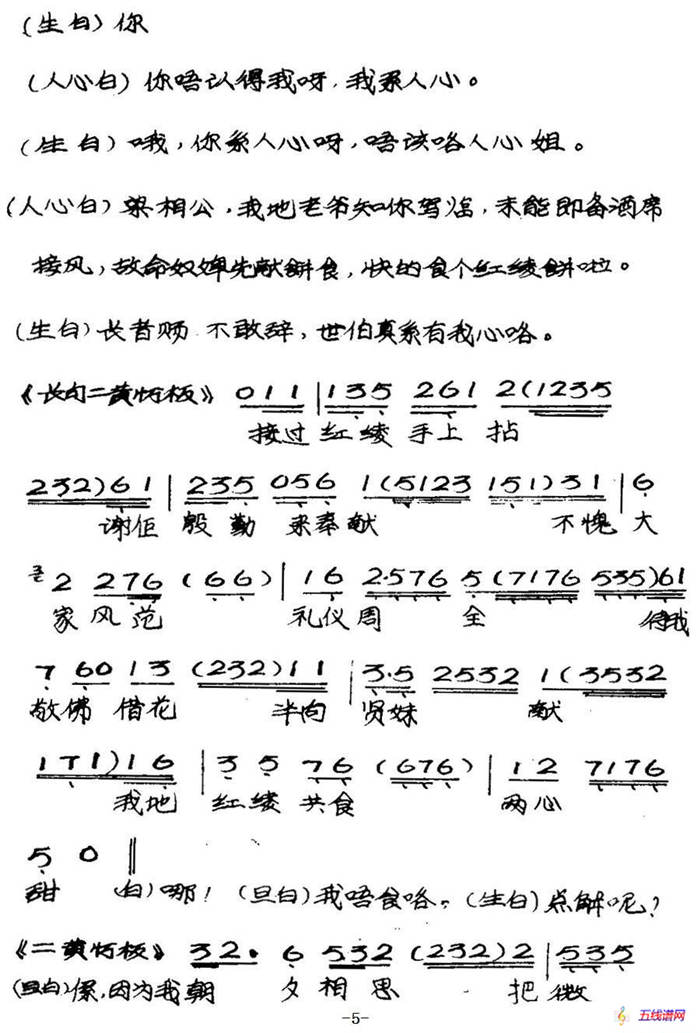 (生白)你
(人心白)你唔认得我呀,我系人心。
(生白)哦,你系人心呀,唔该咯人心姐。
(人心白)梁相公,我地老爷知你驾临,未能即备酒席
接风,故命奴婢先献饼食,快的食个红绫饼啦。
(生白)长者赐 不敢辞,世伯真系有我心咯。
《长句二黄慢板》 0 1 1 | 1 3 5 2 6 1 2 (1 2 3 5
接过 红绫 手上 拈
2 3 2) 6 1 | 2 3 5 0 5 6 1 (5 1 2 3 1 5 1) 3 1 | 6
谢佢 殷勤 来奉献 不愧 大
2 2 7 6 (6 6) | 1 6 2·5 7 6 5 (7 1 7 6 5 3 5) 6 1
家 风范 礼仪 周 全 待我
7 6 0 1 3 (2 3 2) 1 1 | 3·5 2 5 3 2 1 (3 5 3 2
敬佛 借花 半向 贤妹 献
1 7 1) 1 6 | 3 5 7 6 (6 7 6) | 1 2 7 1 7 6
我地 红绫 共食 两心
5 0 ‖
甜 (白)哪! (旦白)我唔食咯。(生白)点解呢?
《二黄慢板》 3 2· 6 5 3 2 (2 3 2) 2 | 5 3 5
(旦白)傒,因为我朝 夕 相 思 把 微
-5-
五线谱网